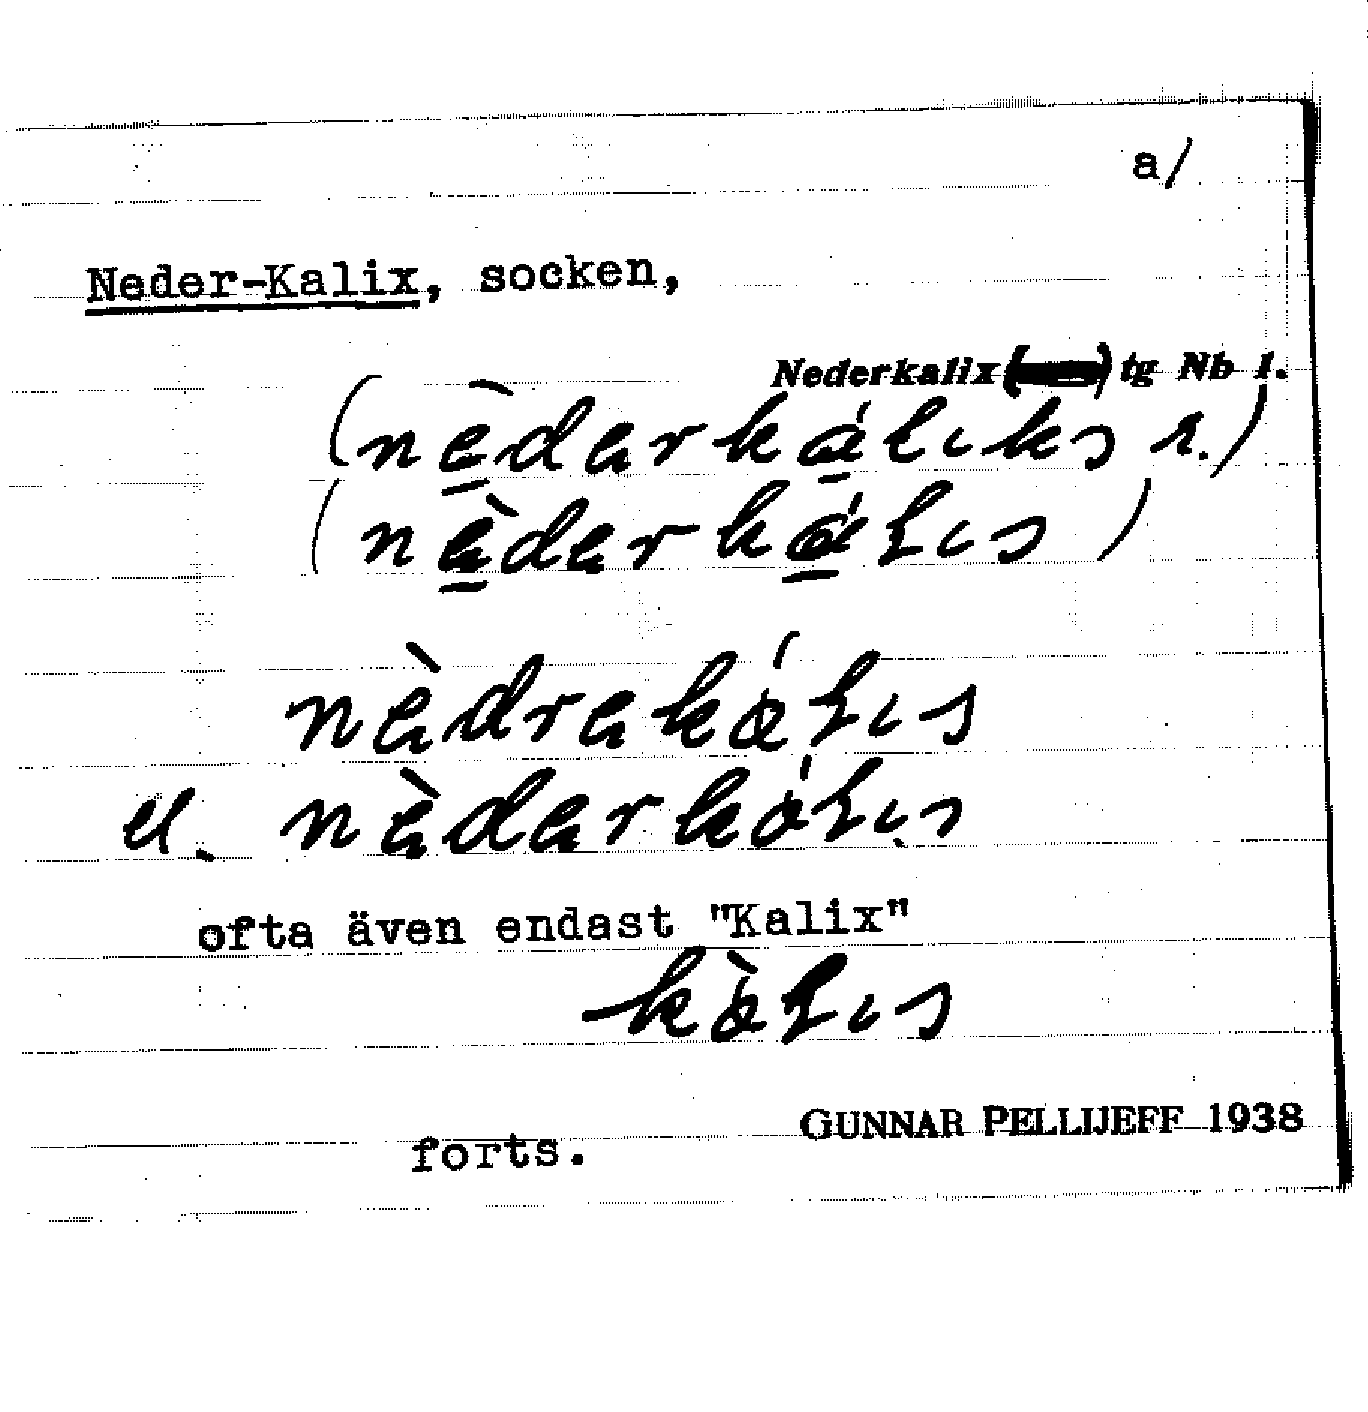 a/
Neder-Kalix, socken,
Nederkalix ( ) tg Nb 1.
(nèdərkáliks r.)
(nèdərkáłıs)
nèdrəkáłıs
el. nèdərkáłıs
ofta även endast "Kalix"
kàłıs
GUNNAR PELLIJEFF 1938
forts.